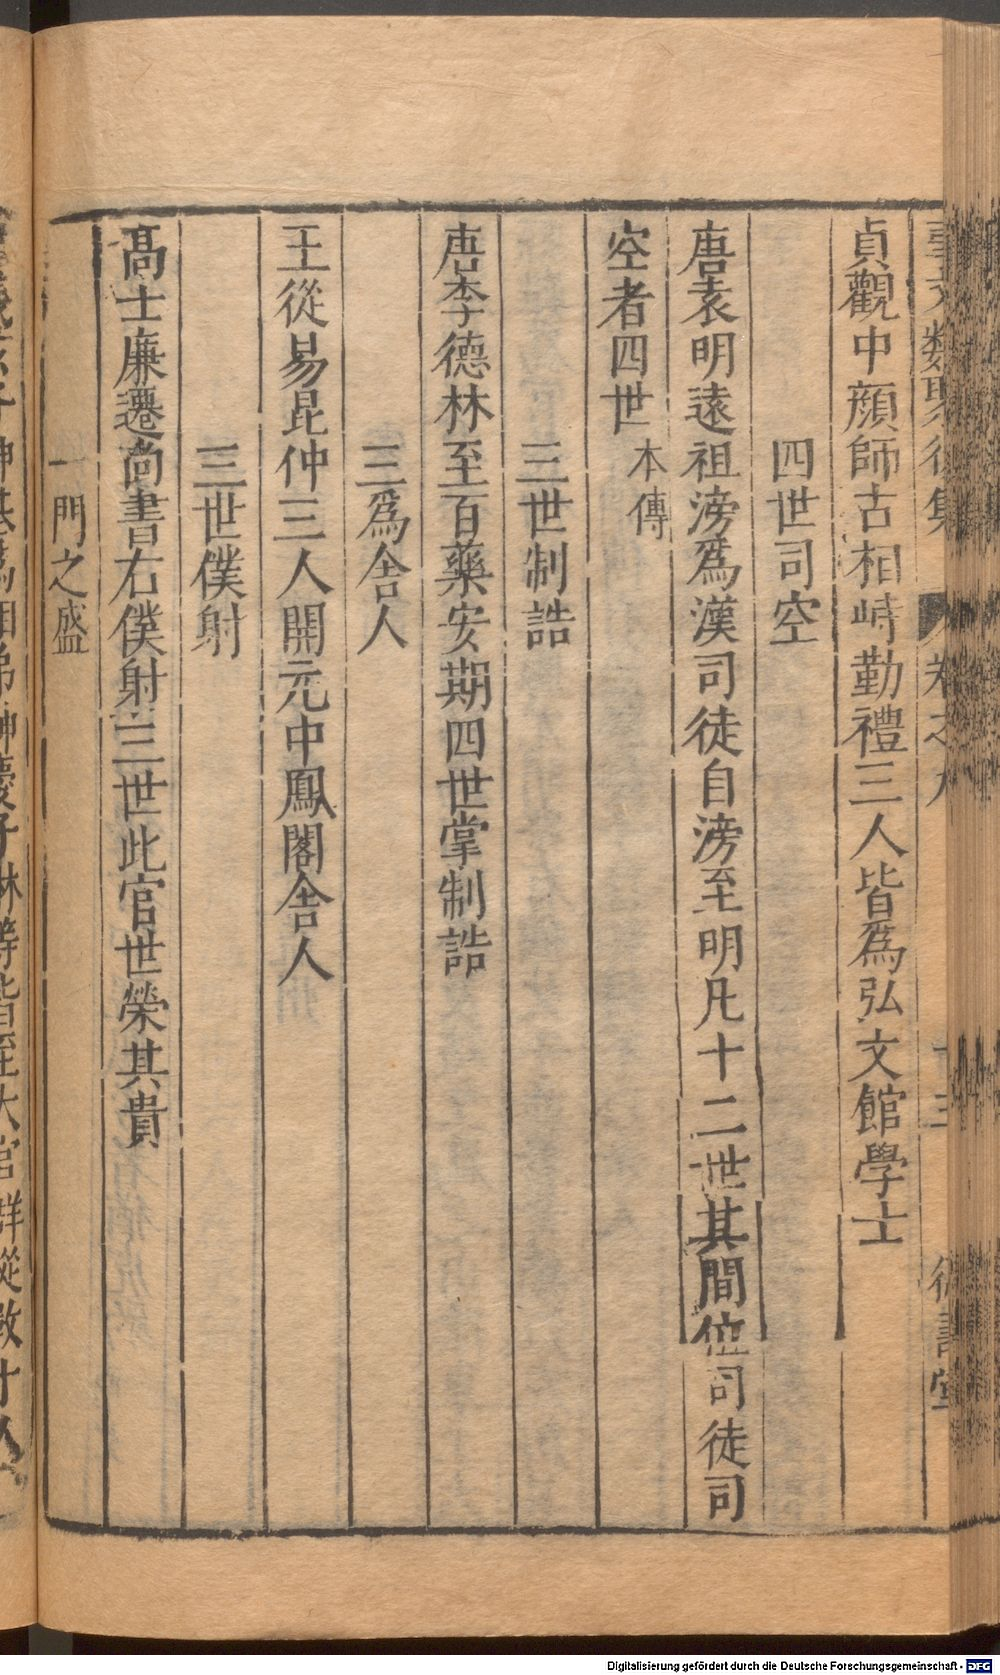 事文類聚後集　卷之九　十三　德壽堂
貞觀中顔師古相時勤禮三人皆爲弘文館學士
四世司空
唐袁明遠祖滂爲漢司徒自滂至明凡十二世其間位司徒司
空者四世本傳
三世制誥
唐李德林至百藥安期四世掌制誥
三爲舎人
王從易昆仲三人開元中鳳閣舎人
三世僕射
高士廉遷尚書右僕射三世此官世榮其貴
一門之盛
Digitalisierung gefördert durch die Deutsche Forschungsgemeinschaft - DFG